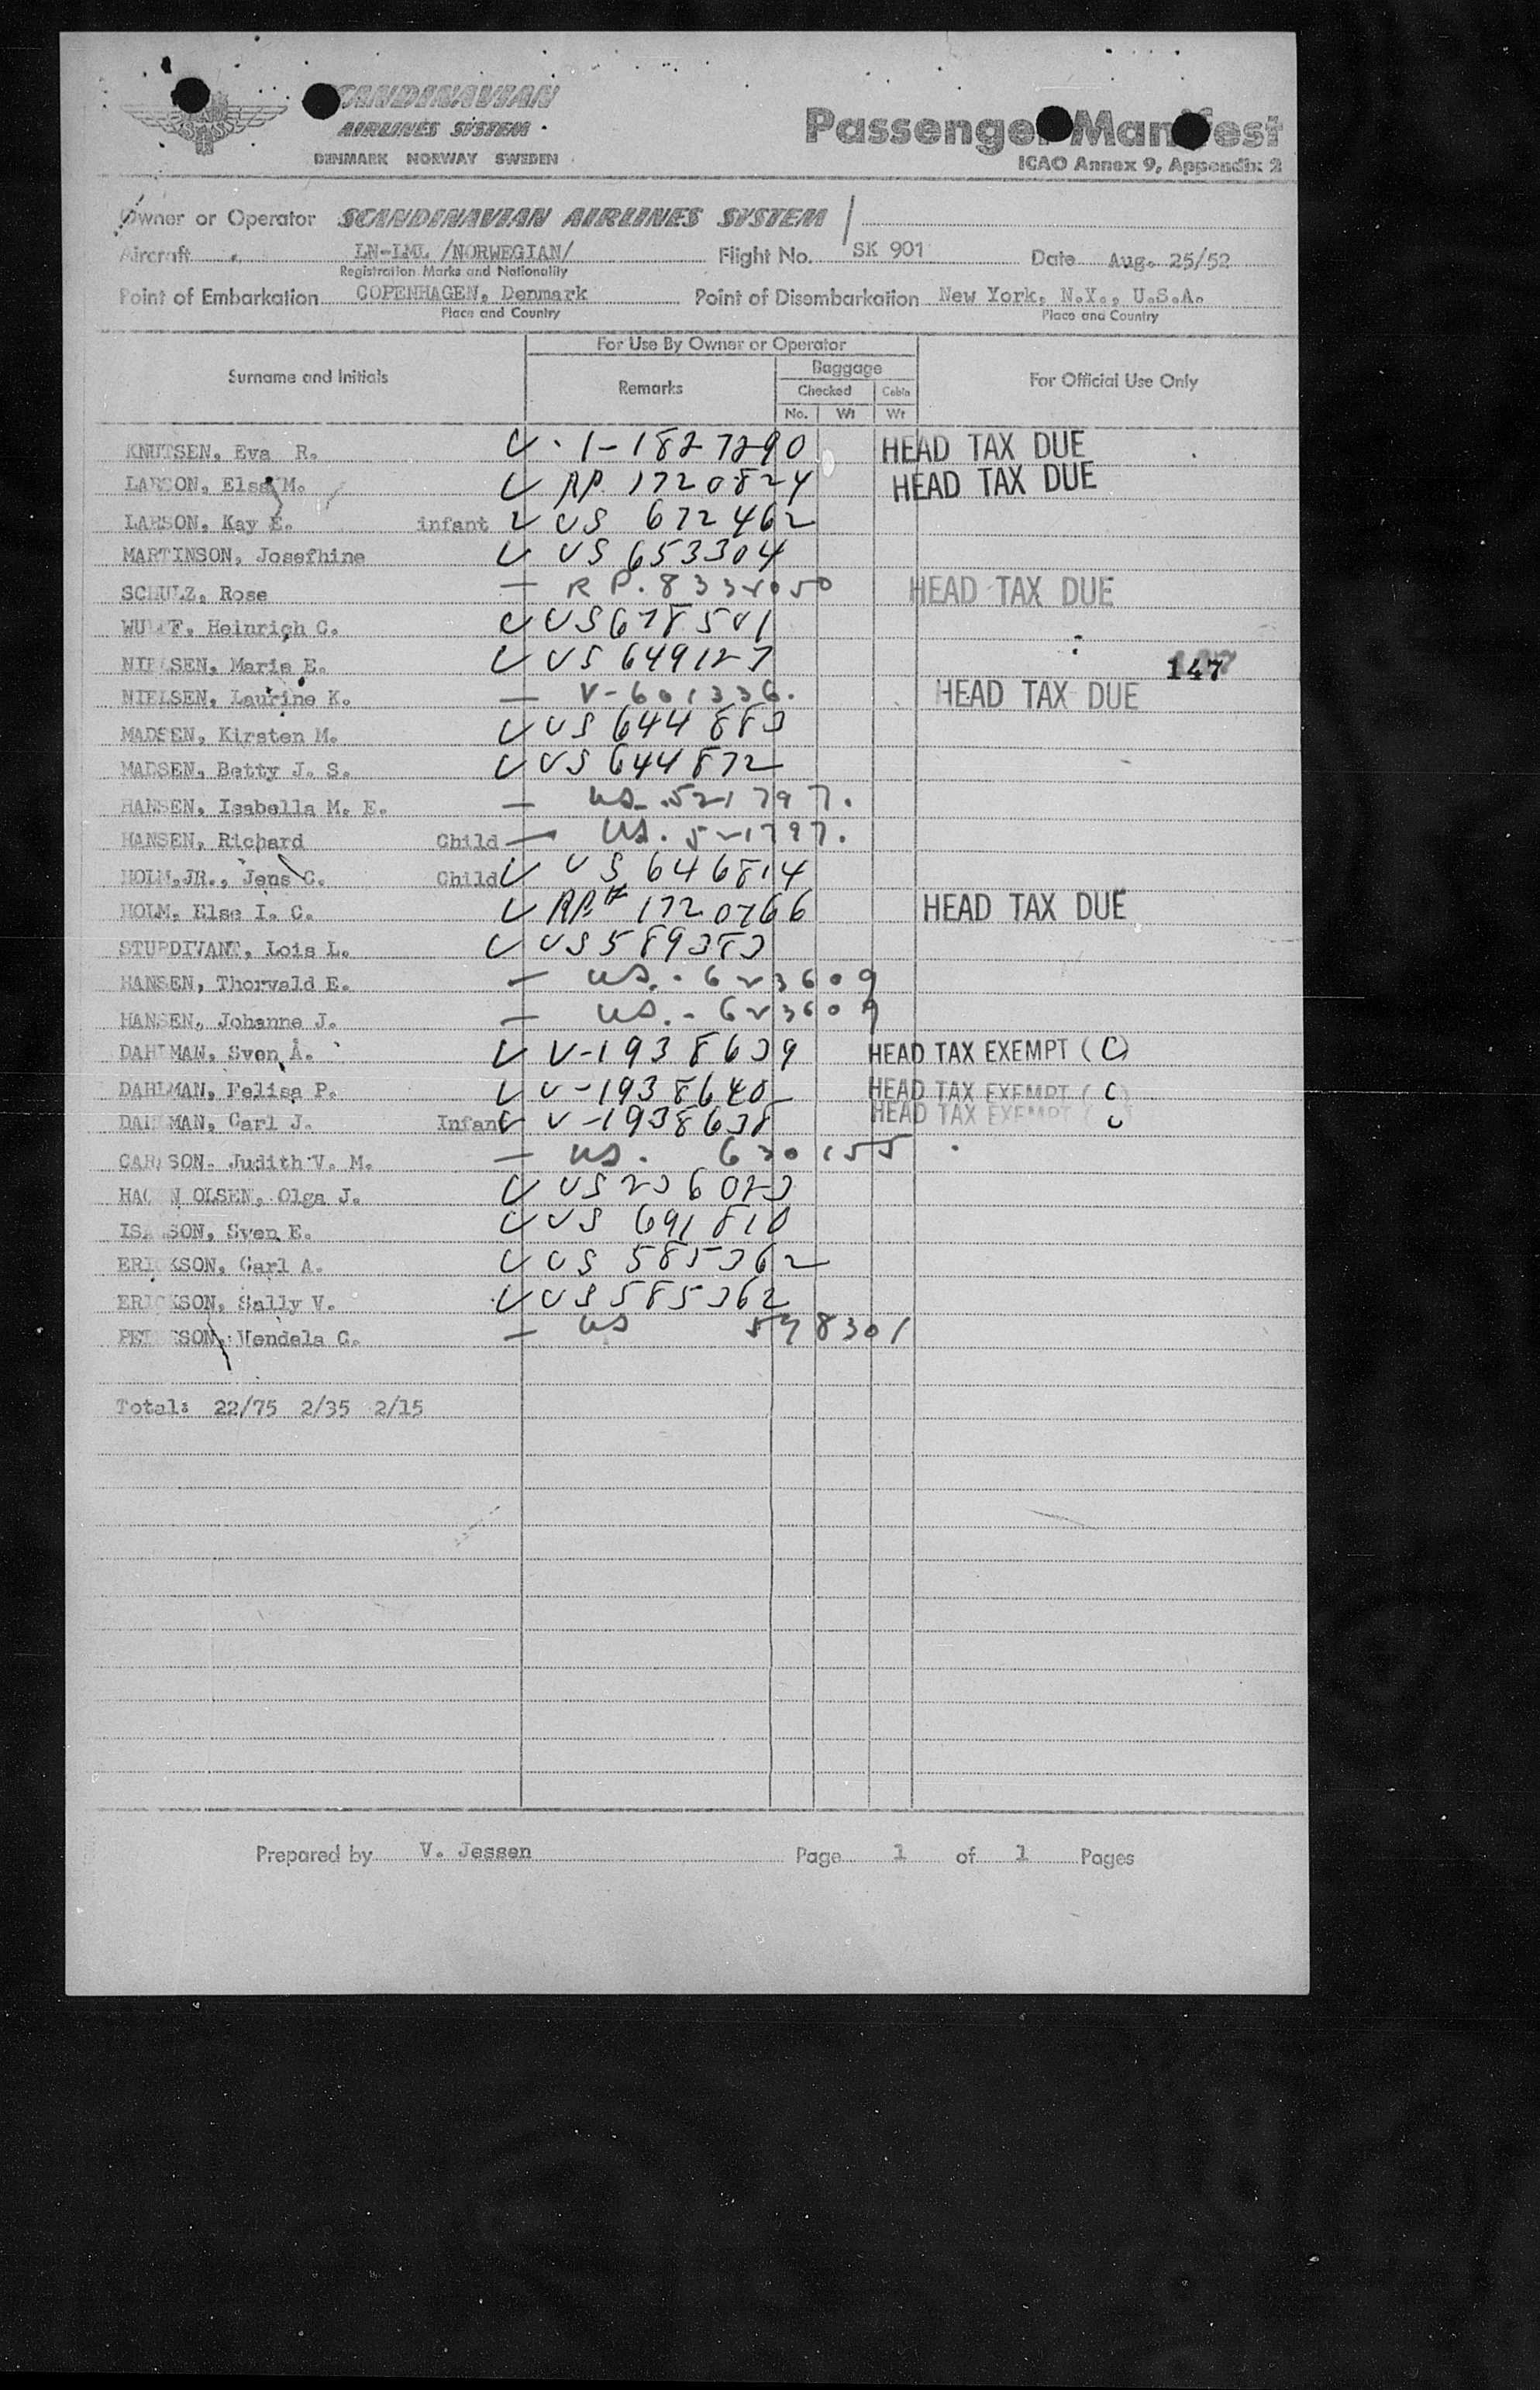 SCANDINAVIAN
AIRLINES SYSTEM
DENMARK NORWAY SWEDEN
Passenger Manifest
ICAO Annex 9, Appendix 2
Owner or Operator SCANDINAVIAN AIRLINES SYSTEM
Aircraft LN-LML /NORWEGIAN/ Flight No. SK 901 Date Aug. 25/52
Registration Marks and Nationality
Point of Embarkation COPENHAGEN, Denmark Point of Disembarkation New York, N.Y., U.S.A.
Place and Country Place and Country
For Use By Owner or Operator
Surname and Initials Remarks Baggage For Official Use Only
Checked Cabin
No. Wt Wt
KNUTSEN, Eva R. 1-1827290 HEAD TAX DUE
LARSON, Elsa M. RP. 1720824 HEAD TAX DUE
LARSON, Kay E. infant US 672462
MARTINSON, Josefhine US 653304
SCHULZ, Rose RP. HEAD TAX DUE
WULFF, Heinrich C. US 678501
NIELSEN, Maria E. US 649123
147
NIELSEN, Laurine K. V-601336. HEAD TAX DUE
MADSEN, Kirsten M. US 644883
MADSEN, Betty J. S. US 644872
HANSEN, Isabella M. E. US. 521797.
HANSEN, Richard Child US. 521797.
HOLM, JR., Jens C. Child US 646814
HOLM, Else I. C. RP# 1720766 HEAD TAX DUE
STURDIVANT, Lois L. US 589383
HANSEN, Thorvald E. US.-623609
HANSEN, Johanne J. US.-623609
DAHLMAN, Sven Å. V-1938639 HEAD TAX EXEMPT (C)
DAHLMAN, Felisa P. V-1938640 HEAD TAX EXEMPT (C)
DAHLMAN, Carl J. Infant V-1938638 HEAD TAX EXEMPT (C)
CARLSON. Judith V. M. US. 630155
HAGEN OLSEN, Olga J. US 236023
ISACSON, Sven E. US 691810
ERICKSON, Carl A. US 585362
ERICKSON, Sally V. US 585362
PETERSSON, Vendela C. US 578301
Total: 22/75 2/35 2/15
Prepared by V. Jessen Page 1 of 1 Pages